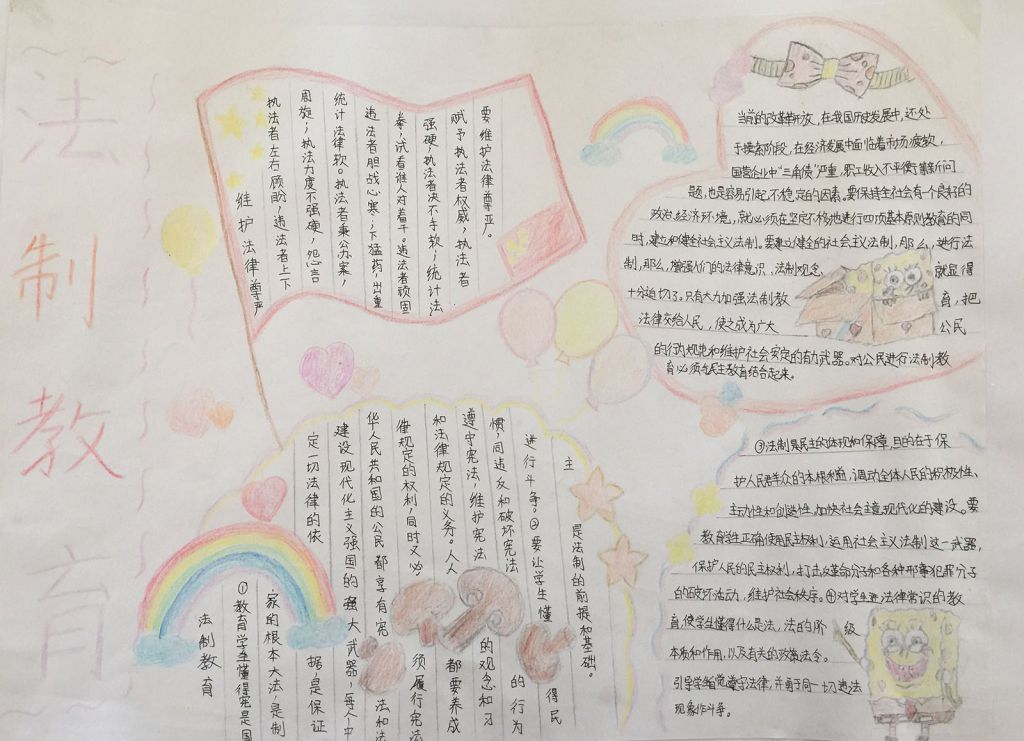 法制教育
维护法律尊严
执法者左右顾盼,违法者上下
周旋;执法力度不强硬,怨心言
统计法律软。执法者秉公办案,
违法者胆战心寒;下猛药,出重
拳,试看谁人对着干。违法者顽固
强硬,执法者决不手软,统计法
赋予执法者权威,执法者
要维护法律尊严。
当前的改革开放,在我国历史发展中,还处
于摸索阶段,在经济发展中面临着市场疲软,
国营企业中"三角债"严重,职工收入不平衡等新问
题,也是容易引起不稳定的因素。要保持生社会有一个良好的
政治经济环境,就必须在坚定不移地进行四项基本原则教育的同
时,建立和健全社会主义法制。要建立健全的社会主义法制,那么,进行法
制,那么,增强人们的法律意识,法制观念,就显得
十分迫切了。只有大力加强法制教育,把
法律交给人民,使之成为广大公民
的行为规范和维护社会安定的有力武器。对公民进行法制教
育必须与民主教育结合起来。
法制教育
①教育学生懂得宪是国
家的根本大法,是制
定一切法律的依据,是保证
建设现代化主义强国的强大武器,每个中
华人民共和国的公民都享有宪法和法
催规定的权利,同时又必须履行宪法
和法律规定的义务。人人都要养成
遵守宪法,维护宪法的观念和习
惯,同违反和破坏宪法的行为
进行斗争。②要让学生懂得民
主是法制的前提和基础。
③法制是民主的体现和保障,目的在于保
护人民群众的本根利益,调动全体人民的积极性、
主动性和创造性,加快社会主意现代化的建设。要
教育学生正确使用民主权利,运用社会主义法制这一武器,
保护人民的民主权利,打击反革命分子和各种刑事犯罪分子
的破坏活动,维护社会秩序。④对学生进法律常识的教
育,使学生懂得什么是法,法的阶级
本质和作用,以及有关的政策法令。
引导学生自觉遵守法律,并勇于同一切违法
现象作斗争。